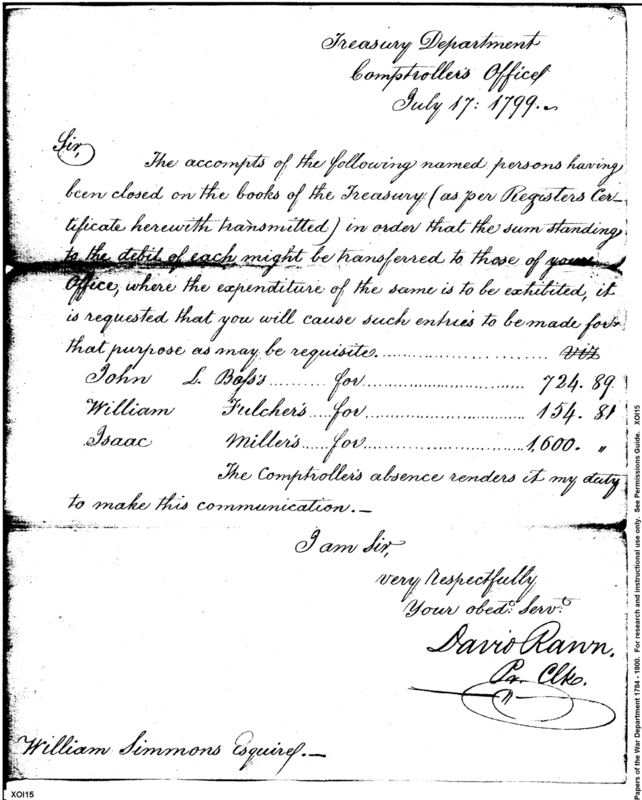 Treasury Department
Comptroller's Office
July 17: 1799.
Sir,
The accompts of the following named persons having
been closed on the books of the Treasury (as per Registers Cer-
tificate herewith transmitted) in order that the sum standing
to the debit of each might be transferred to those of your
Office, where the expenditure of the same is to be exhibited, it
is requested that you will cause such entries to be made for
that purpose as may be requisite. viz
John L. Bass's for 724. 89.
William Fulcher's for 154. 81
Isaac Miller's for 1,600. "
The Comptroller's absence renders it my duty
to make this communication.—
I am Sir,
very respectfully
Your obedt. Servt.
David Rawn.
Pr. Clk.
William Simmons Esquire.—
XOI15
Papers of the War Department 1784 - 1800. For research and instructional use only. See Permissions Guide. XOI15